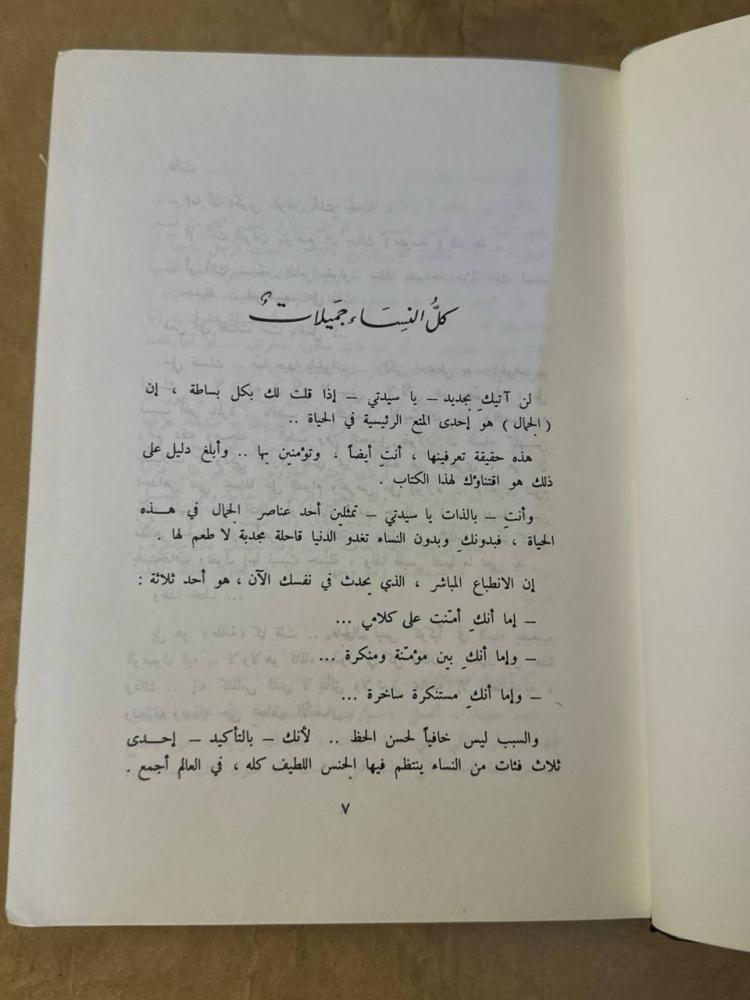 كلُّ النِسَاء جَميلات؟
لن آتيكِ بجديد ــ يا سيدتي ــ إذا قلت لك بكل بساطة ، إن
( الجمال ) هو إحدى المتع الرئيسية في الحياة ..
هذه حقيقة تعرفينها ، أنتِ أيضاً ، وتؤمنين بها .. وأبلغ دليل على
ذلك هو اقتناؤك لهذا الكتاب .
وأنتِ ــ بالذات يا سيدتي ــ تمثلين أحد عناصر الجمال في هــذه
الحياة ، فبدونكِ وبدون النساء تغدو الدنيا قاحلة مجدبة لا طعم لها .
إن الانطباع المباشر ، الذي يحدث في نفسك الآن ، هو أحد ثلاثة :
ــ إما أنكِ أمّنت على كلامي ...
ــ وإما أنكِ بين مؤمّنة ومنكرة ...
ــ وإما أنكِ مستنكرة ساخرة ...
والسبب ليس خافياً لحسن الحظ .. لأنك ــ بالتأكيد ــ إحــدى
ثلاث فئات من النساء ينتظم فيها الجنس اللطيف كله ، في العالم أجمع .
٧